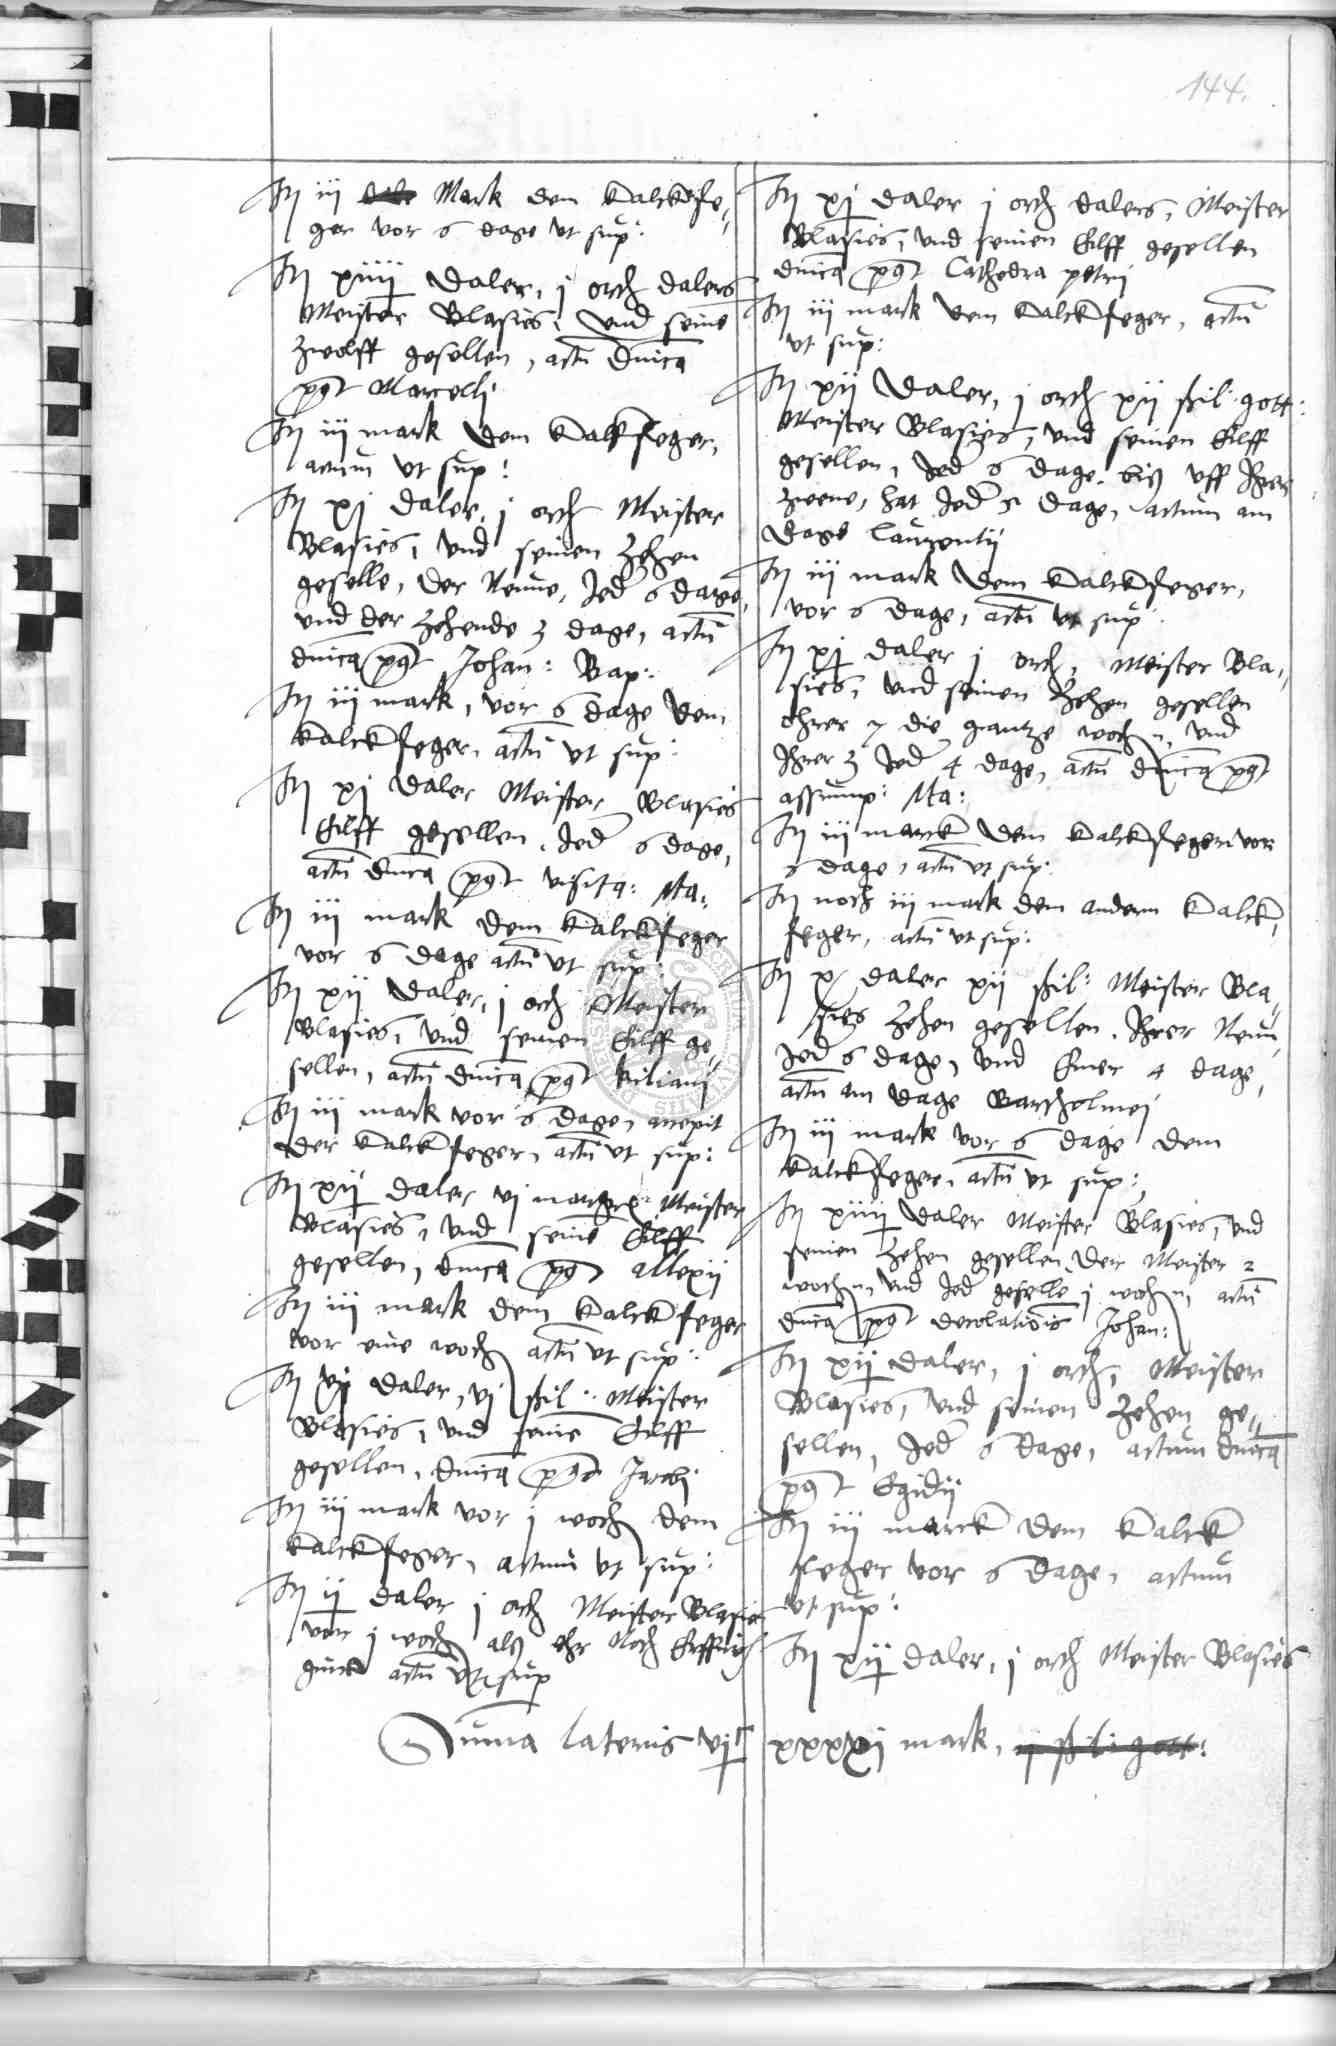 144.
It iij Mark dem kalckfe„
ger vor 6 dage vt sup:
It xiiij daler, j orth dalers
Meister Blasies, vnd seine
zwolff gesellen, actu dnica
post Marcelli
It iij mark dem kalkfeger,
actum vt sup:
It xj daler, j orth Meister
Blasies, vnd seinen zehen
geselle, der Neune, Jed 6 dage,
vnd der zehende 3 dage, actu
dnica post Johan: Bap:
It iij mark, vor 6 dage dem
kalckfeger, actu vt sup:
It xj daler Meister Blasies
Eilff gesellen, Jed 6 dage,
actu dnica post visita: Ma:
It iij mark dem kalckfeger
vor 6 dage actu vt sup:
It xij daler, j orth Meister
Blasies, vnd seinen Eilff ge„
sellen, actu dnica post kiliani
It iij mark vor 6 dage, accepit
der kalckfeger, actu vt sup:
It xij daler vj Meister
Blasies, vnd seine Eilff
gesellen, dnica post Allexij
It iij mark dem kalckfeger
vor eine woch actu vt sup:
It daler, vj ßil: Meister
Blasies, vnd seine Eilff
gesellen, dnica post Jacobi
It iij mark vor j woch dem
kalckfeger, actum vt sup:
It ij daler j orth Meister Blasies
vor j woch als ehr Noch
actu vt sup
It xj daler j orth dalers, Meister
Blasies, vnd seinen Eilff gesellen
dnica post Cathedra petri
It iij mark dem kalckfeger, actu
vt sup:
It xij daler, j orth xij ßil: gott:
Meister Blasies, vnd seinen Eilff
gesellen, Jed 6 dage, biß vff Ihrer
zweene, hat Jed 5 dage, actum am
dage Laurentij
It iij mark dem kalckfeger,
vor 6 dage, actu vt sup:
It xj daler j orth, Meister Bla„
sies, vnd seinen zehen gesellen
Ihrer 7 die gantze wochn, vnd
Ihrer 3 Jed 4 dage, actu dnica post
assump: Ma:
It iij marck dem kalckfeger vor
6 dage, actu vt sup:
It noch iij mark dem andern kalck„
feger, actu vt sup:
It x daler xij ßil: Meister Bla„
sies zehen gesellen, Ihrer Neun
Jed 6 dage, vnd Einer 4 dage,
actu am dage Bartholmei
It iij mark vor 6 dage dem
kalckfeger, actu vt sup:
It xiiij daler Meister Blasies, vnd
seinen zehen gesellen, der Meister 2
wochn, vnd Jed geselle j wochn, actu
dnica post decolationis Johan:
It xij daler, j orth, Meister
Blasies, vnd seinen zehen ge„
sellen, Jed 6 dage, actum dnica
post Egidij
It iij marck dem kalck
feger vor 6 dage, actum
vt sup:
It xij daler, j orth Meister Blasies
Suma lateris vjc xxxxj mark, ij ßil: gott: